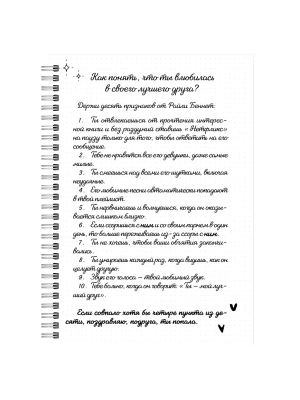 Как понять, что ты влюбилась
в своего лучшего друга?
Держи десять признаков от Райли Беннет:
1. Ты отвлекаешься от прочтения интерес-
ной книги и без раздумий ставишь «Нетфликс»
на паузу только для того, чтобы ответить на его
сообщение.
2. Тебе не нравятся все его девушки, даже самые
милые.
3. Ты смеешься над всеми его шутками, включая
неудачные.
4. Его любимые песни автоматически попадают
в твой плейлист.
5. Ты нервничаешь и волнуешься, когда он оказы-
вается слишком близко.
6. Если ссоришься с ним и со своим парнем в один
день, то больше переживаешь из-за ссоры с ним.
7. Ты не хочешь, чтобы ваши объятия заканчи-
вались.
8. Ты умираешь каждый раз, когда видишь, как он
целует другую.
9. Звук его голоса – твой любимый звук.
10. Тебе больно, когда он говорит: «Ты – мой луч-
ший друг».
Если совпало хотя бы четыре пункта из де-
сяти, поздравляю, подруга, ты попала.